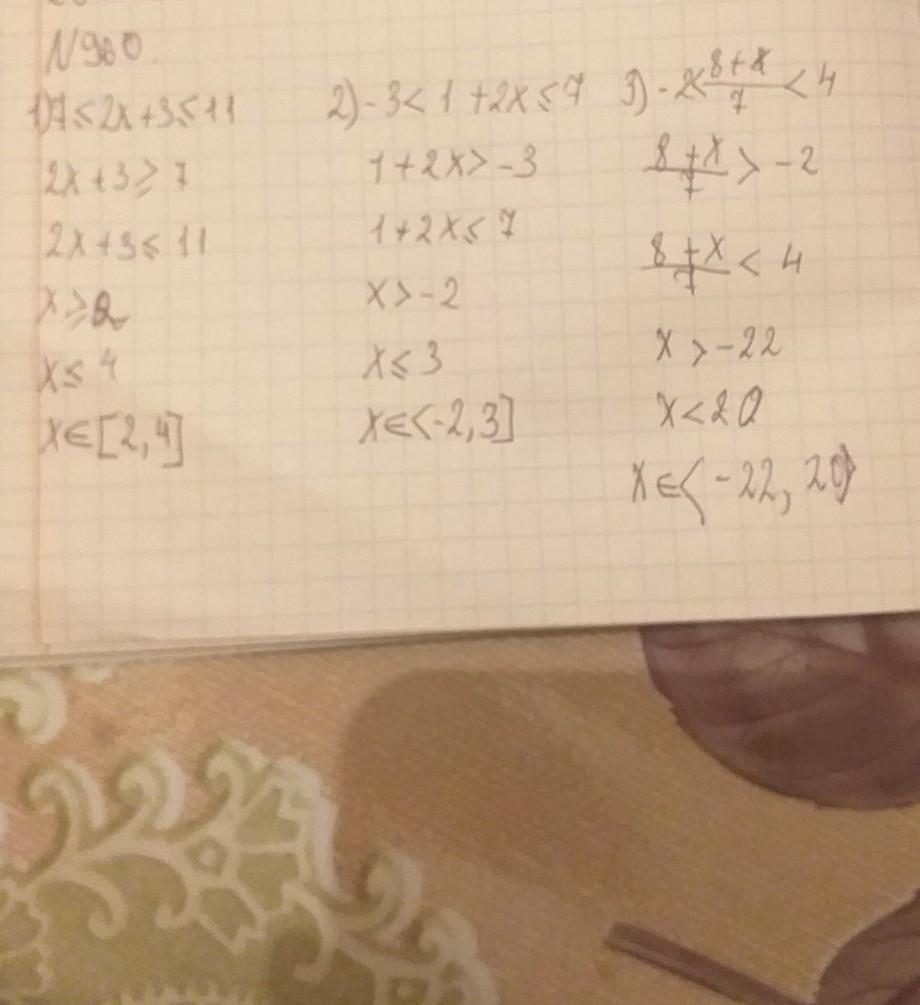 N960
1) 7≤2x+3≤11
2x+3≥7
2x+3≤11
x≥2
x≤4
x∈[2,4]
2) -3<1+2x≤7
1+2x>-3
1+2x≤7
x>-2
x≤3
x∈<-2,3]
3) -2<\frac{8+x}{7}<4
\frac{8+x}{7}>-2
\frac{8+x}{7}<4
x>-22
x<20
x∈<-22,20>